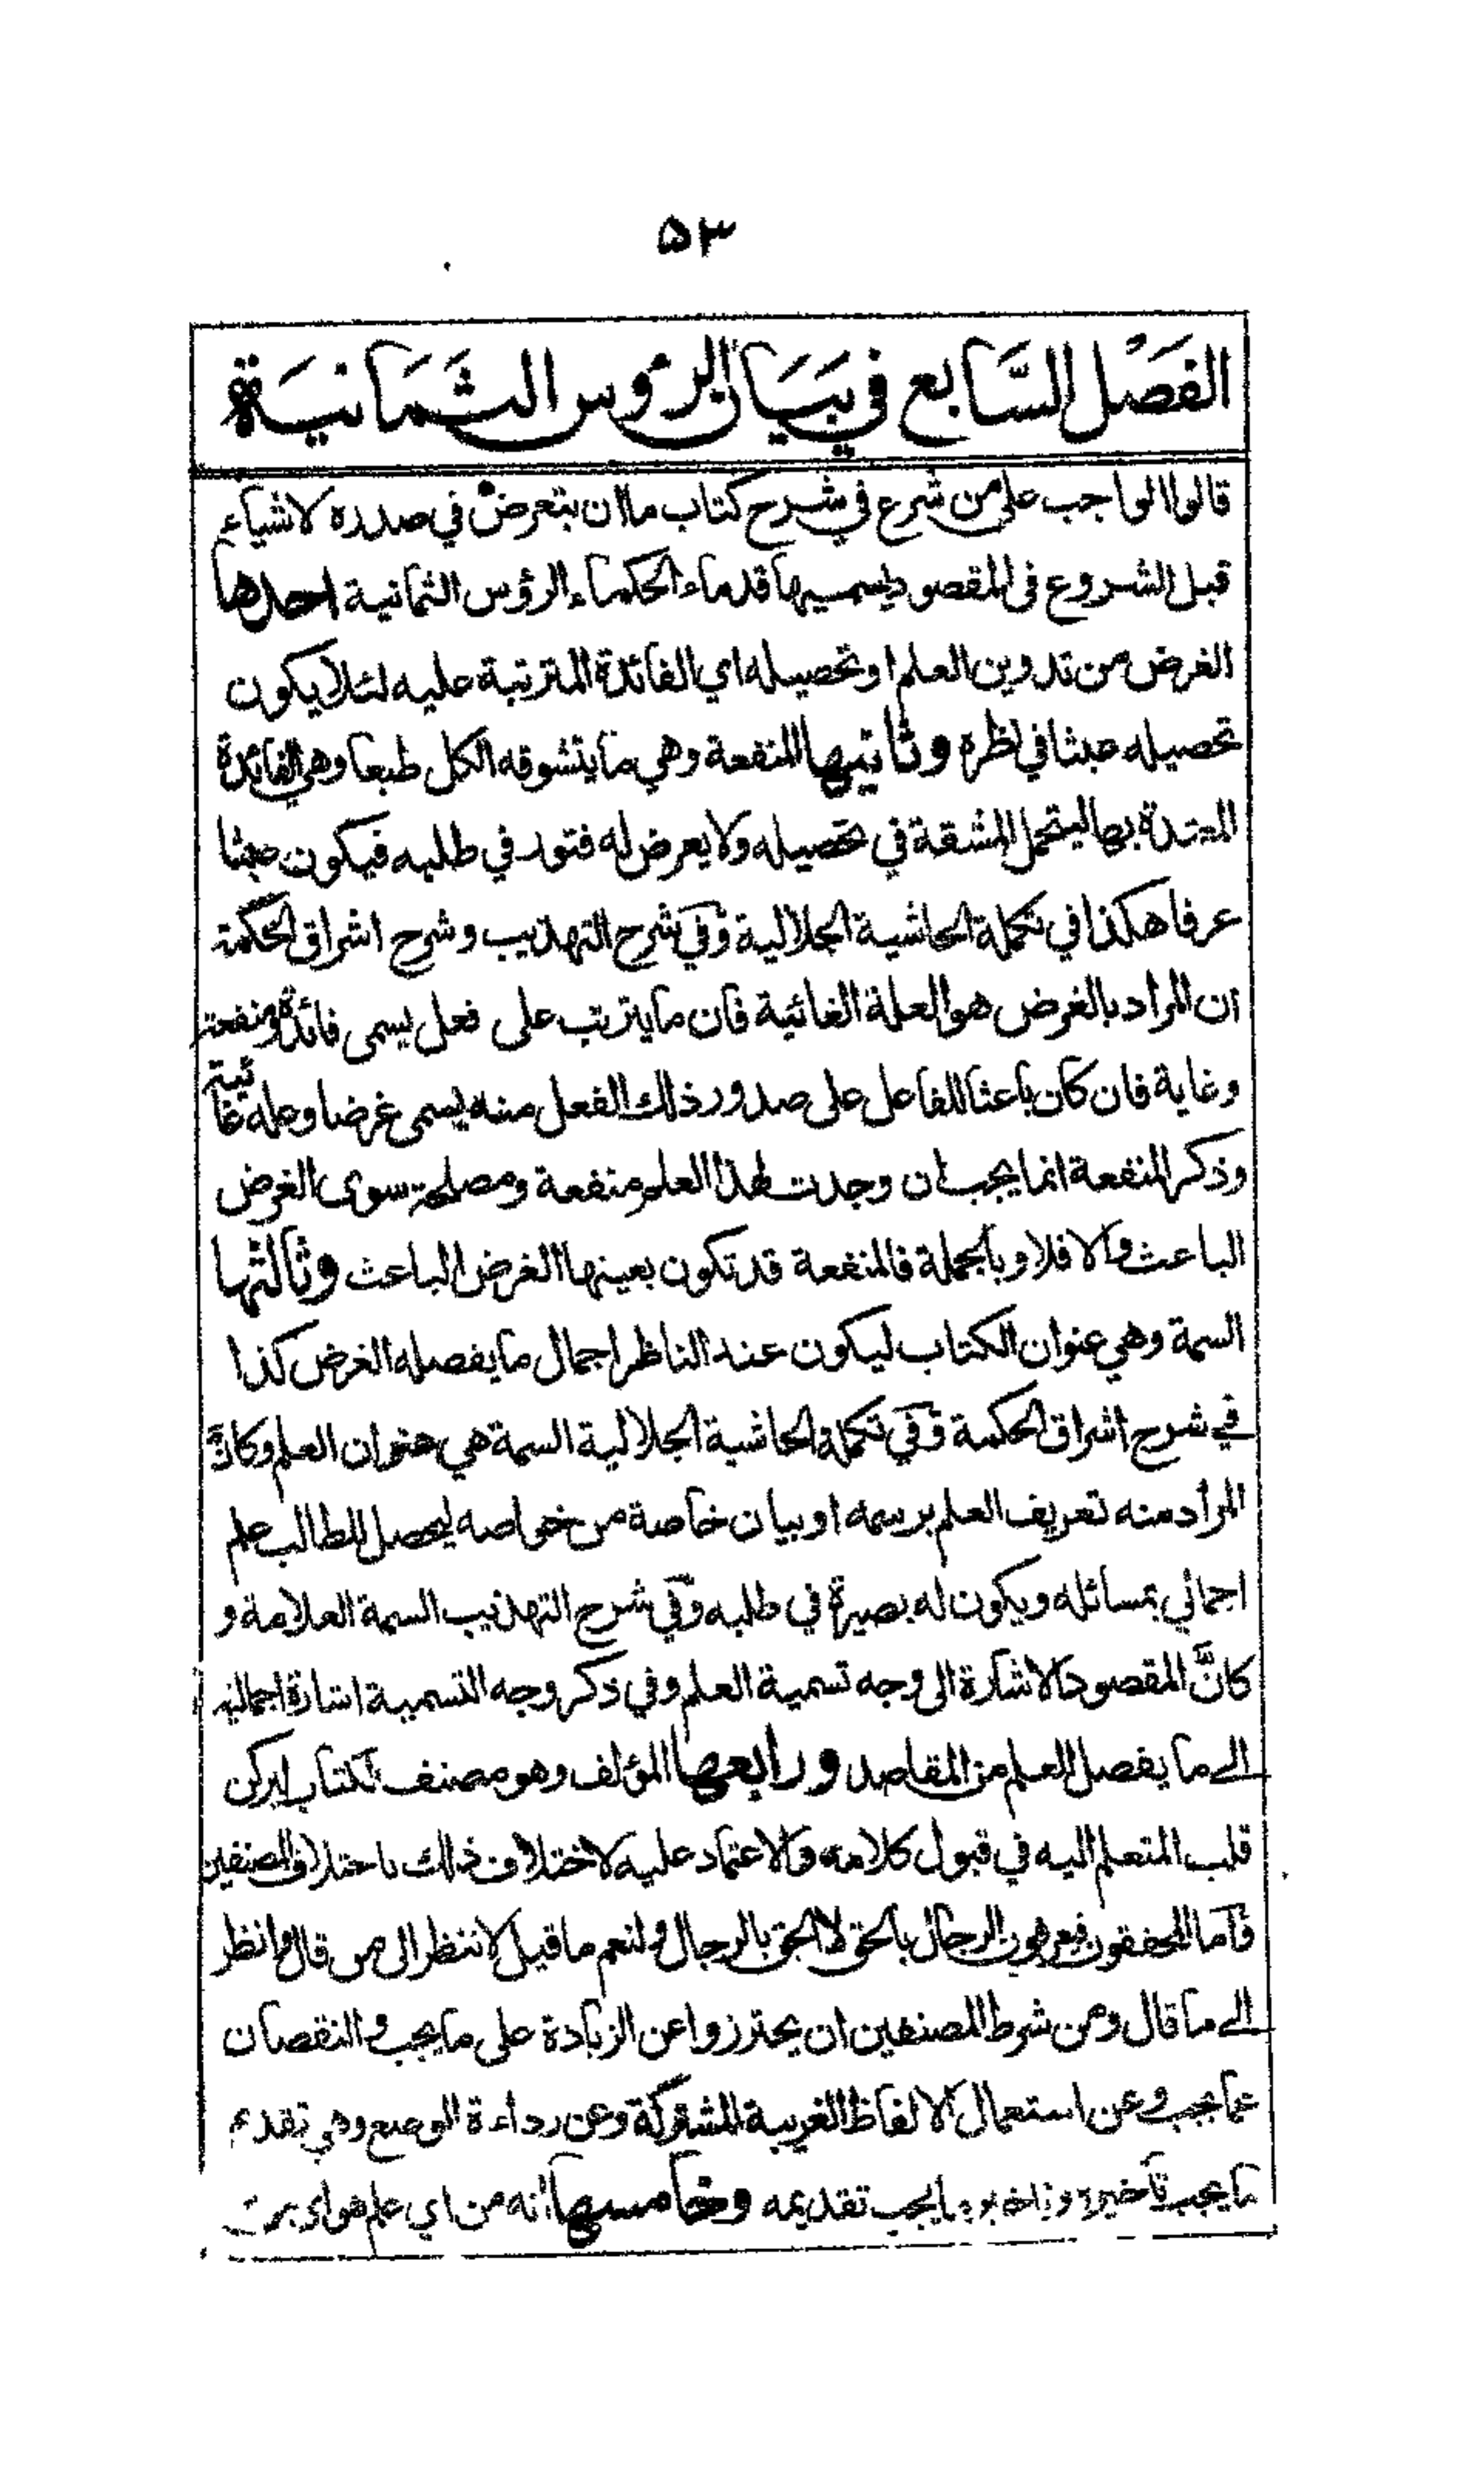 ۵۳
الفَصْل السَّابع في بَيَان الرؤس الثَمَانيَة
قالوا الواجب على من شرع في شرح كتاب ما ان يتعرض في صدره لاشياء
قبل الشروع فى المقصود يسميها قدماء الحكماء الرؤس الثمانية احدها
الغرض من تدوين العلم او تحصيله اي الفائدة المترتبة عليه لئلا يكون
تحصيله عبثا في نظره وثانيها المنفعة وهي ما يتشوقه الكل طبعا وهي الفائدة
المعتدة بها ليتحمل المشقة في تحصيله ولا يعرض له فتور في طلبه فيكون عبثا
عرفا هكذا في تكملة الحاشية الجلالية وفي شرح التهذيب وشرح اشراق الحكمة
ان المراد بالغرض هو العلة الغائية فان ما يترتب على فعل يسمى فائدة ومنفعة
وغاية فان كان باعثا للفاعل على صدور ذلك الفعل منه يسمى غرضا وعلة غائية
وذكر المنفعة انما يجب ان وجدت لهذا العلم منفعة ومصلحة سوى الغرض
الباعث والا فلا وبالجملة فالمنفعة قد تكون بعينها الغرض الباعث وثالثها
السمة وهي عنوان الكتاب ليكون عند الناظر اجمال ما يفصله الغرض كذا
في شرح اشراق الحكمة وفي تكملة الحاشية الجلالية السمة هي عنوان العلم وكانَّ
المراد منه تعريف العلم برسمه او بيان خاصة من خواصه ليحصل للطالب علم
اجمالي بمسائله ويكون له بصيرة في طلبه وفي شرح التهذيب السمة العلامة و
كانَّ المقصود الاشارة الى وجه تسمية العلم وفي ذكر وجه التسمية اشارة اجمالية
الى ما يفصل العلم من المقاصد ورابعها المؤلف وهو مصنف الكتاب ليركن
قلب المتعلم اليه في قبول كلامه والاعتماد عليه لاختلاف ذلك باختلاف المصنفين
واما المحققون فيعرفون الرجال بالحق لا الحق بالرجال ولنعم ما قيل لا تنظر الى من قال وانظر
الى ما قال ومن شرط المصنفين ان يحترزوا عن الزيادة على ما يجب والنقصان
عما يجب وعن استعمال الالفاظ الغريبة المشتركة وعن رداءة الوضع وهي تقديم
ما يجب تأخيره وتاخير ما يجب تقديمه وخامسها انه من اي علم هو اي